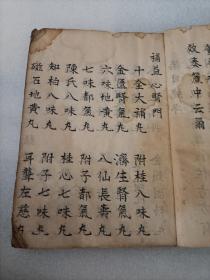 云爾
補益心腎門
十全大補丸 附桂八味丸
金匱腎氣丸 濟生腎氣丸
六味地黃丸 八仙長壽丸
七味都氣丸 附子都氣丸
陳氏八味丸 桂心七味丸
知柏八味丸 附子七味丸
磁石地黃丸 耳聾左慈丸